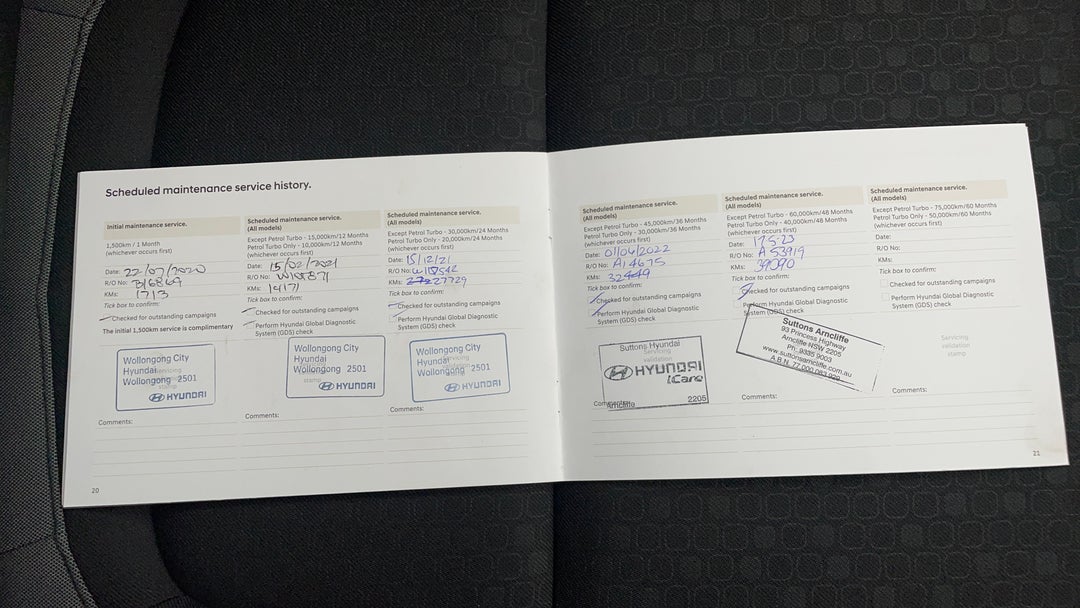 Scheduled maintenance service history.
Initial maintenance service.
1,500km / 1 Month
(whichever occurs first)
Date: 22/07/2020
R/O No: B16869
KMs: 1713
Tick box to confirm:
Checked for outstanding campaigns
The initial 1,500km service is complimentary
Wollongong City
Hyundai
Wollongong 2501
HYUNDAI
Comments:
Scheduled maintenance service.
(All models)
Except Petrol Turbo - 15,000km/12 Months
Petrol Turbo Only - 10,000km/12 Months
(whichever occurs first)
Date: 15/02/2021
R/O No:
KMs: 14171
Tick box to confirm:
Checked for outstanding campaigns
Perform Hyundai Global Diagnostic
System (GDS) check
Wollongong City
Hyundai
Wollongong 2501
stamp
HYUNDAI
Comments:
Scheduled maintenance service.
(All models)
Except Petrol Turbo - 30,000km/24 Months
Petrol Turbo Only - 20,000km/24 Months
(whichever occurs first)
Date: 15/12/21
R/O No:
KMs: 27729
Tick box to confirm:
Checked for outstanding campaigns
Perform Hyundai Global Diagnostic
System (GDS) check
Wollongong City
Hyundai
Wollongong 2501
HYUNDAI
Comments:
20
Scheduled maintenance service.
(All models)
Except Petrol Turbo - 45,000km/36 Months
Petrol Turbo Only - 30,000km/36 Months
(whichever occurs first)
Date: 01/06/2022
R/O No: A14675
KMs: 32449
Tick box to confirm:
Checked for outstanding campaigns
Perform Hyundai Global Diagnostic
System (GDS) check
Suttons Hyundai
Servicing
validation
HYUNDAI
iCare
Arncliffe 2205
Comments:
Scheduled maintenance service.
(All models)
Except Petrol Turbo - 60,000km/48 Months
Petrol Turbo Only - 40,000km/48 Months
(whichever occurs first)
Date: 17-5-23
R/O No: A 53919
KMs: 39090
Tick box to confirm:
Checked for outstanding campaigns
Perform Hyundai Global Diagnostic
System (GDS) check
Suttons Arncliffe
93 Princess Highway
Arncliffe NSW 2205
Ph: 9335 9003
www.suttonsarncliffe.com.au
Comments:
Scheduled maintenance service.
(All models)
Except Petrol Turbo - 75,000km/60 Months
Petrol Turbo Only - 50,000km/60 Months
(whichever occurs first)
Date:
R/O No:
KMs:
Tick box to confirm:
Checked for outstanding campaigns
Perform Hyundai Global Diagnostic
System (GDS) check
Servicing
validation
stamp
Comments:
21